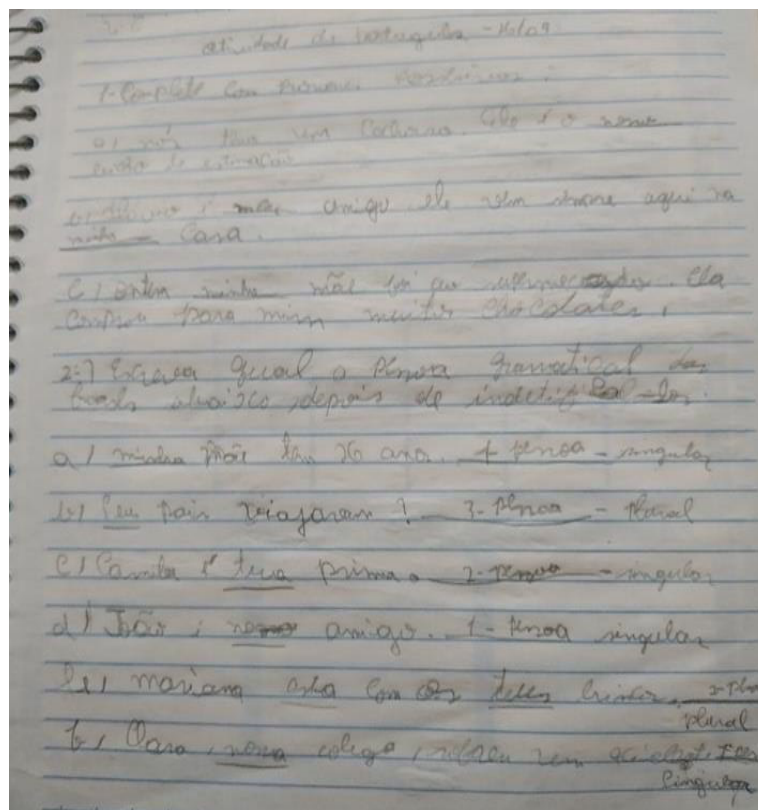 atividade de português - 16/09
1- Complete com pronomes possessivos:
a) nós temos um cachorro. Ele é o nosso
de estimação
b) é meu amigo ele vem sempre aqui na
minha casa.
c) Ontem minha mãe foi ao supermercado. Ela
comprou para mim muitos chocolates.
2-) Escreva qual a pessoa gramatical das
abaixo, depois de
a) minha mãe tem 26 ano. 1 pessoa - singular
b) Seu pais viajaram? 3- pessoa - plural
c) Camila é tua prima. 2- pessoa - singular
d) João é nosso amigo. 1- pessoa singular
e) mariana com os teus 2-
plural
f) Clara, nossa colega, vem
singular